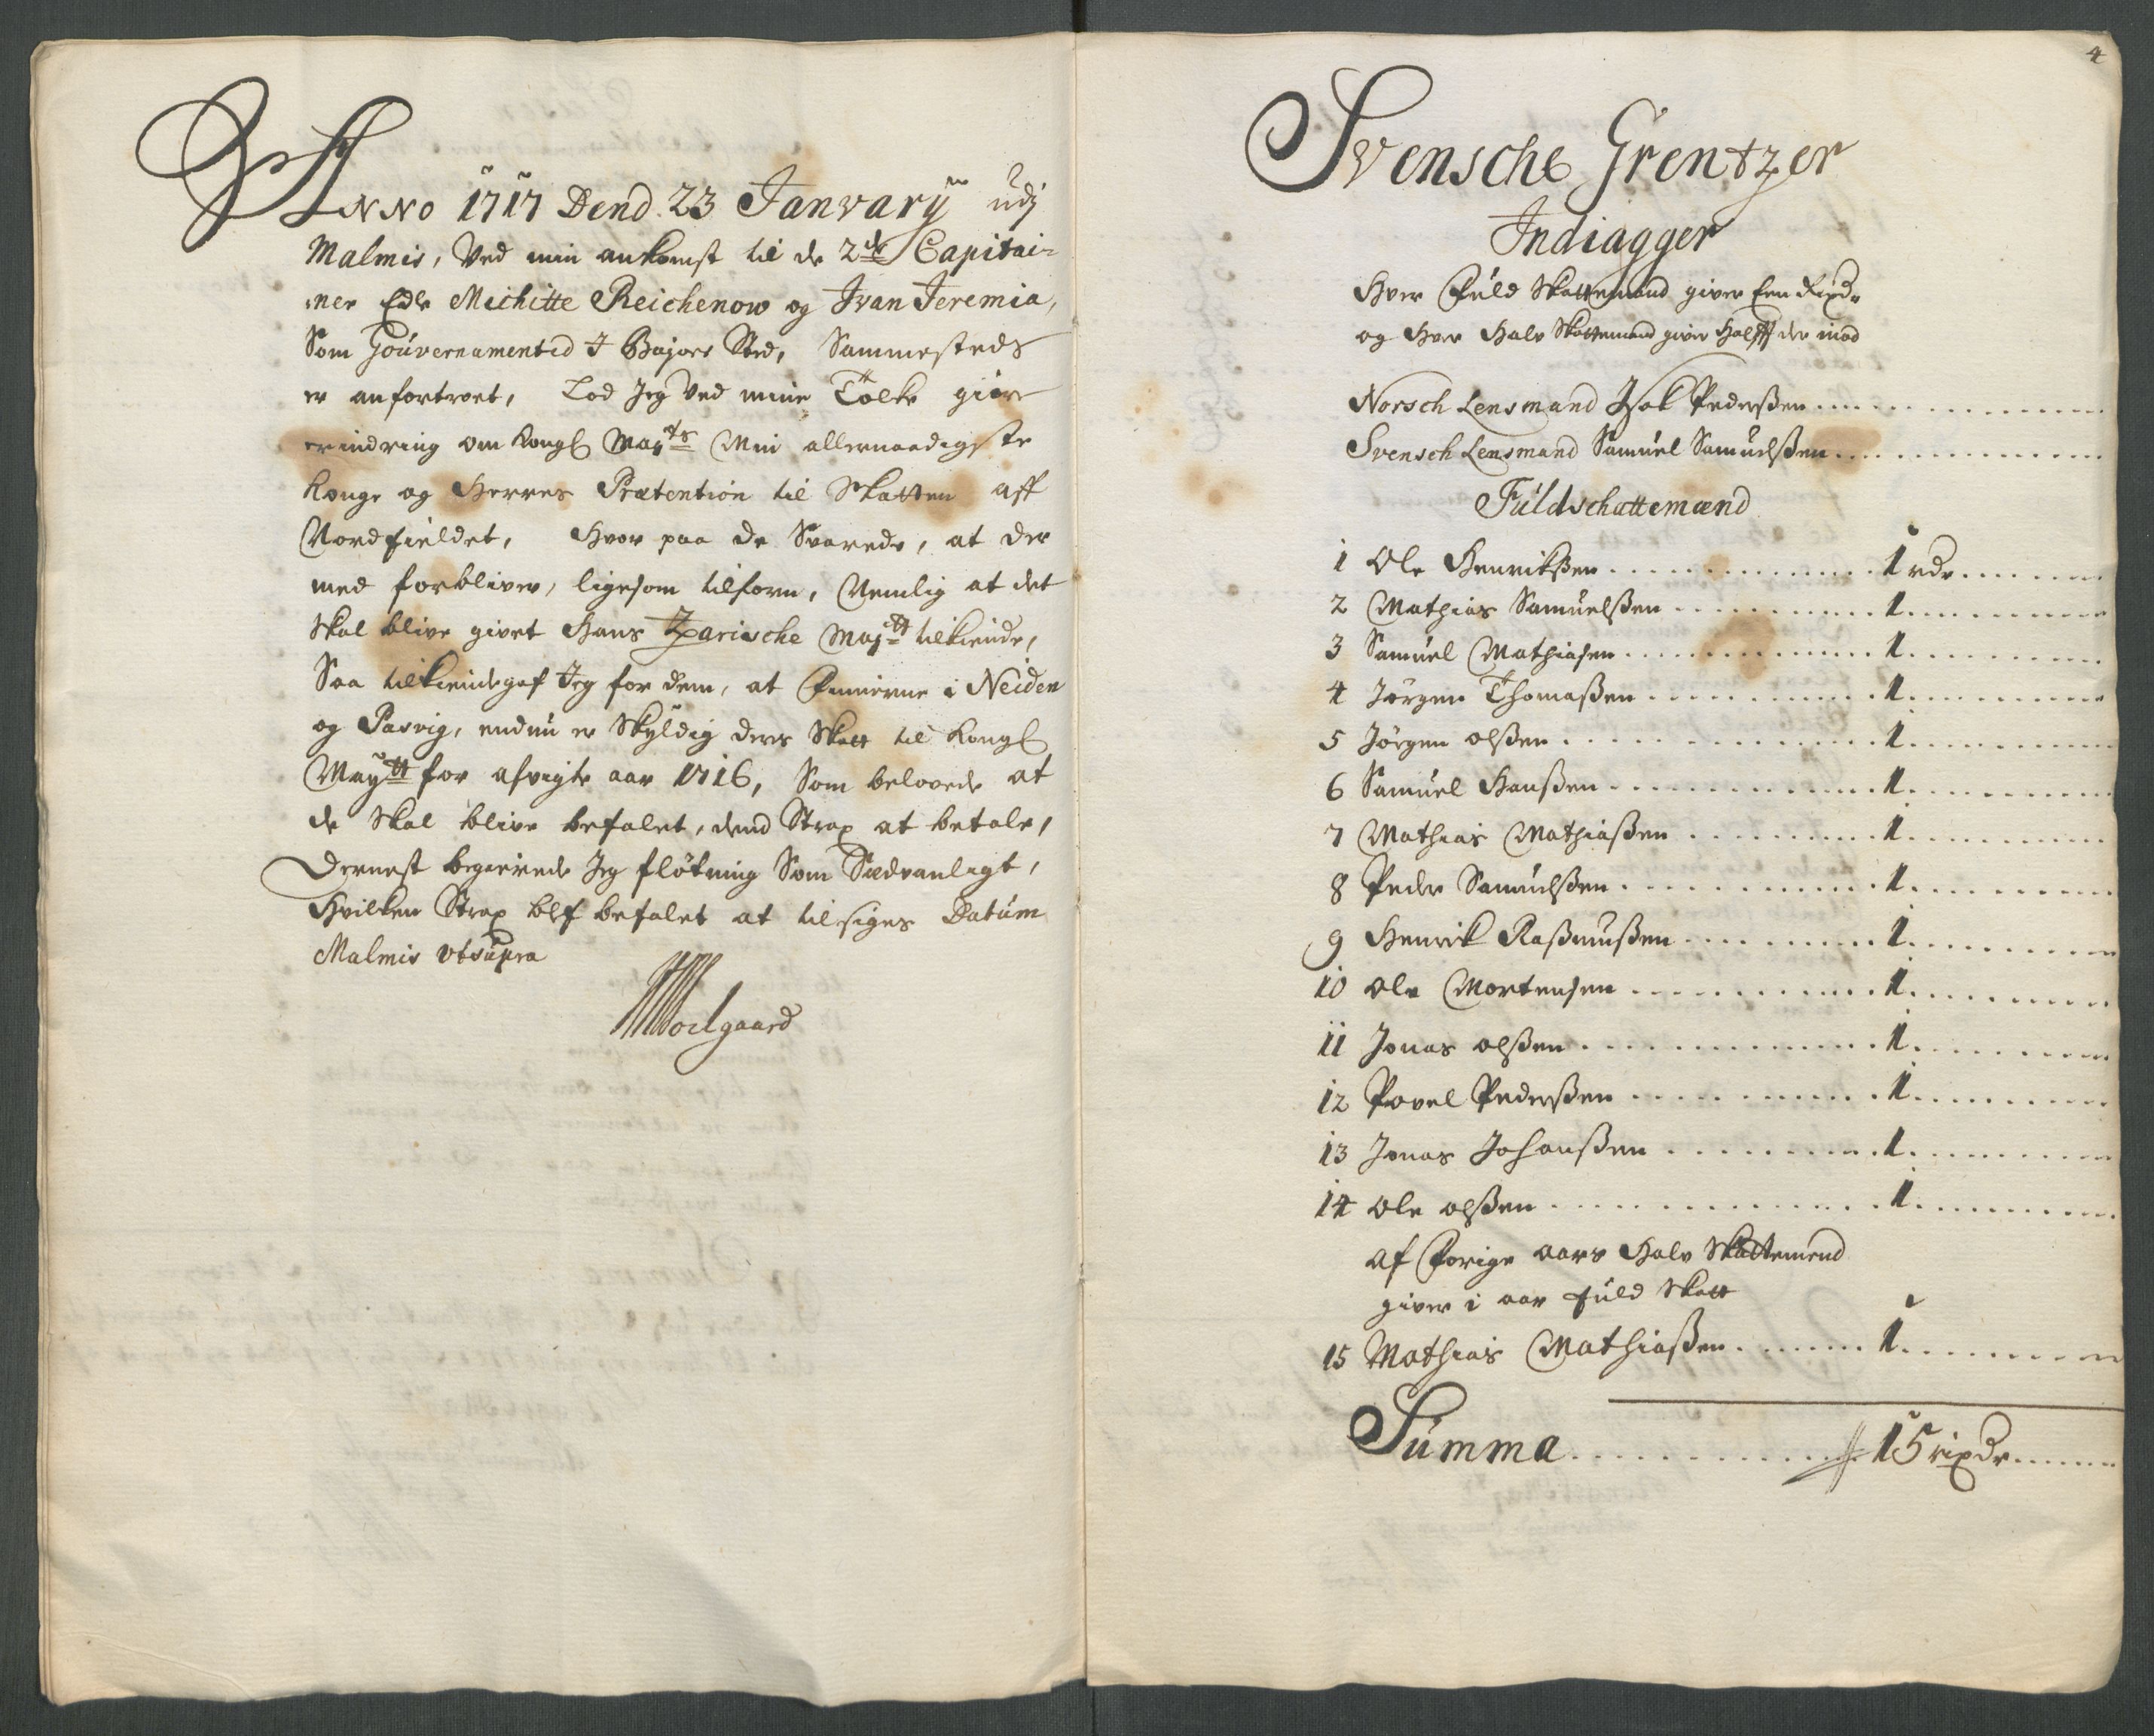 Anno 1717 Dend 23 Janvarÿ udj
Malmis, Ved min ankomst til de 2de Capitai-
ner Edle Michitte Reichenow og Ivan Jeremia,
Som Gouvernamentid J Bajors Sted, Sammesteds
er anfortroet, Lod Jeg Ved mine Tolke giøre
erindring om Kongl Mayts Min allernaadigste
Konge og Herres Prætention til Skatten aff
Nordfieldet, Hvor paa de Svarede, at der
med forbliver, ligesom tilforn, Nemlig at det
Skal blive givet Hans Tzarische Majtt tilkiende,
Saa tilkiendegaf Jeg for dem, at Finnerne i Neiden
og Pasvig, endnu er Skyldig deris Skatt til Kongl
Maytt for afvigte aar 1716, Som belovede at
de Skal blive befalet, dend Strax at betale,
Dernest begierede Jeg fløtning Som Sædvanligt,
Hvilken Strax blef befalet at tilsiges Datum
Malmis vtsupra
Moelgaard
4
Svensche Grentzer
Indiagger
Hver Fuld Skattemand giver Een Rixdr
og Hver Halv Skattemand giver Halfft der imod
Norsch Lensmand Isak Pederßen
Svensch Lensmand Samuel Samuelßen
Fuldschattemænd
1 Ole Henrikßen 1 rdr
2 Mathias Samuelßen 1
3 Samuel Mathiasen 1
4 Jørgen Thomaßen 1
5 Jørgen olßen 1
6 Samuel Hanßen 1
7 Mathias Mathiaßen 1
8 Peder Samuelßen 1
9 Henrik Raßmußen 1
10 Ole Mortensen 1
11 Jonas olßen 1
12 Povel Pederßen 1
13 Jonas Johanßen 1
14 Ole olßen 1
af Forige aars Halv Skattemend
giver i aar fuld Skatt
15 Mathias Mathiaßen 1
Summa 15 rixdr